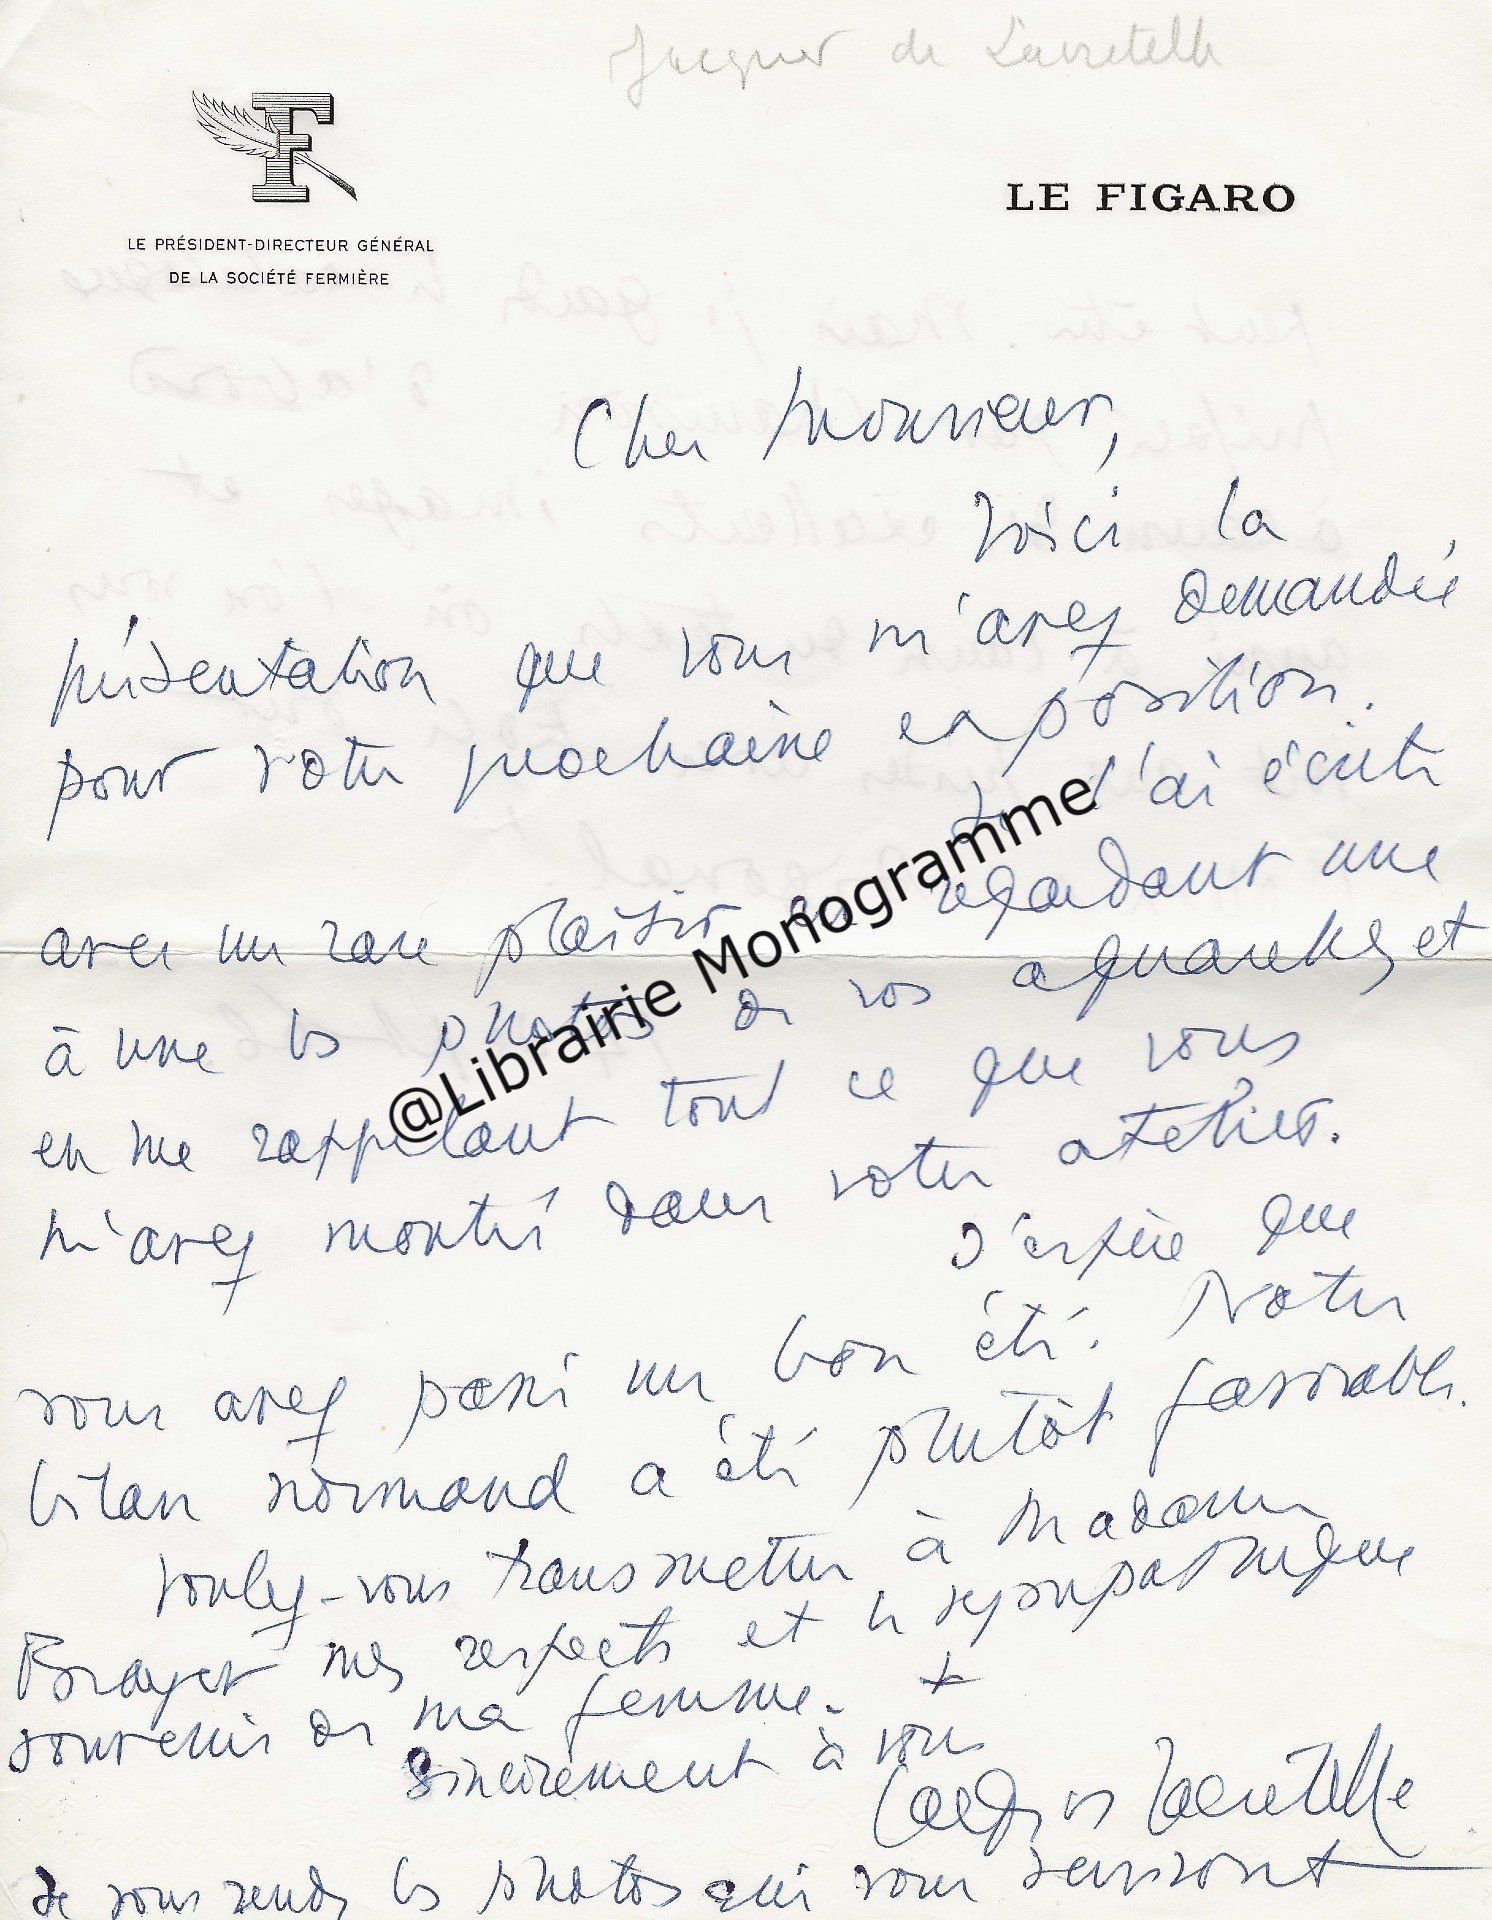 Jacques de Lacretelle
F
LE FIGARO
LE PRÉSIDENT-DIRECTEUR GÉNÉRAL
DE LA SOCIÉTÉ FERMIÈRE
Cher Monsieur,
Voici la
présentation que vous m'avez demandée
pour votre prochaine exposition.
Je l'ai écrite
avec un rare plaisir en regardant une
à une les photos de vos aquarelles et
en me rappelant tout ce que vous
m'avez montré dans votre atelier.
J'espère que
vous avez passé un bon été. Notre
bilan normand a été plutôt favorable.
Voulez-vous transmettre à Madame
Brayer mes respects et le sympathique
souvenir de ma femme. +
Sincèrement à vous
Jacques de Lacretelle
Je vous rends les photos qui vous serviront
@Librairie Monogramme